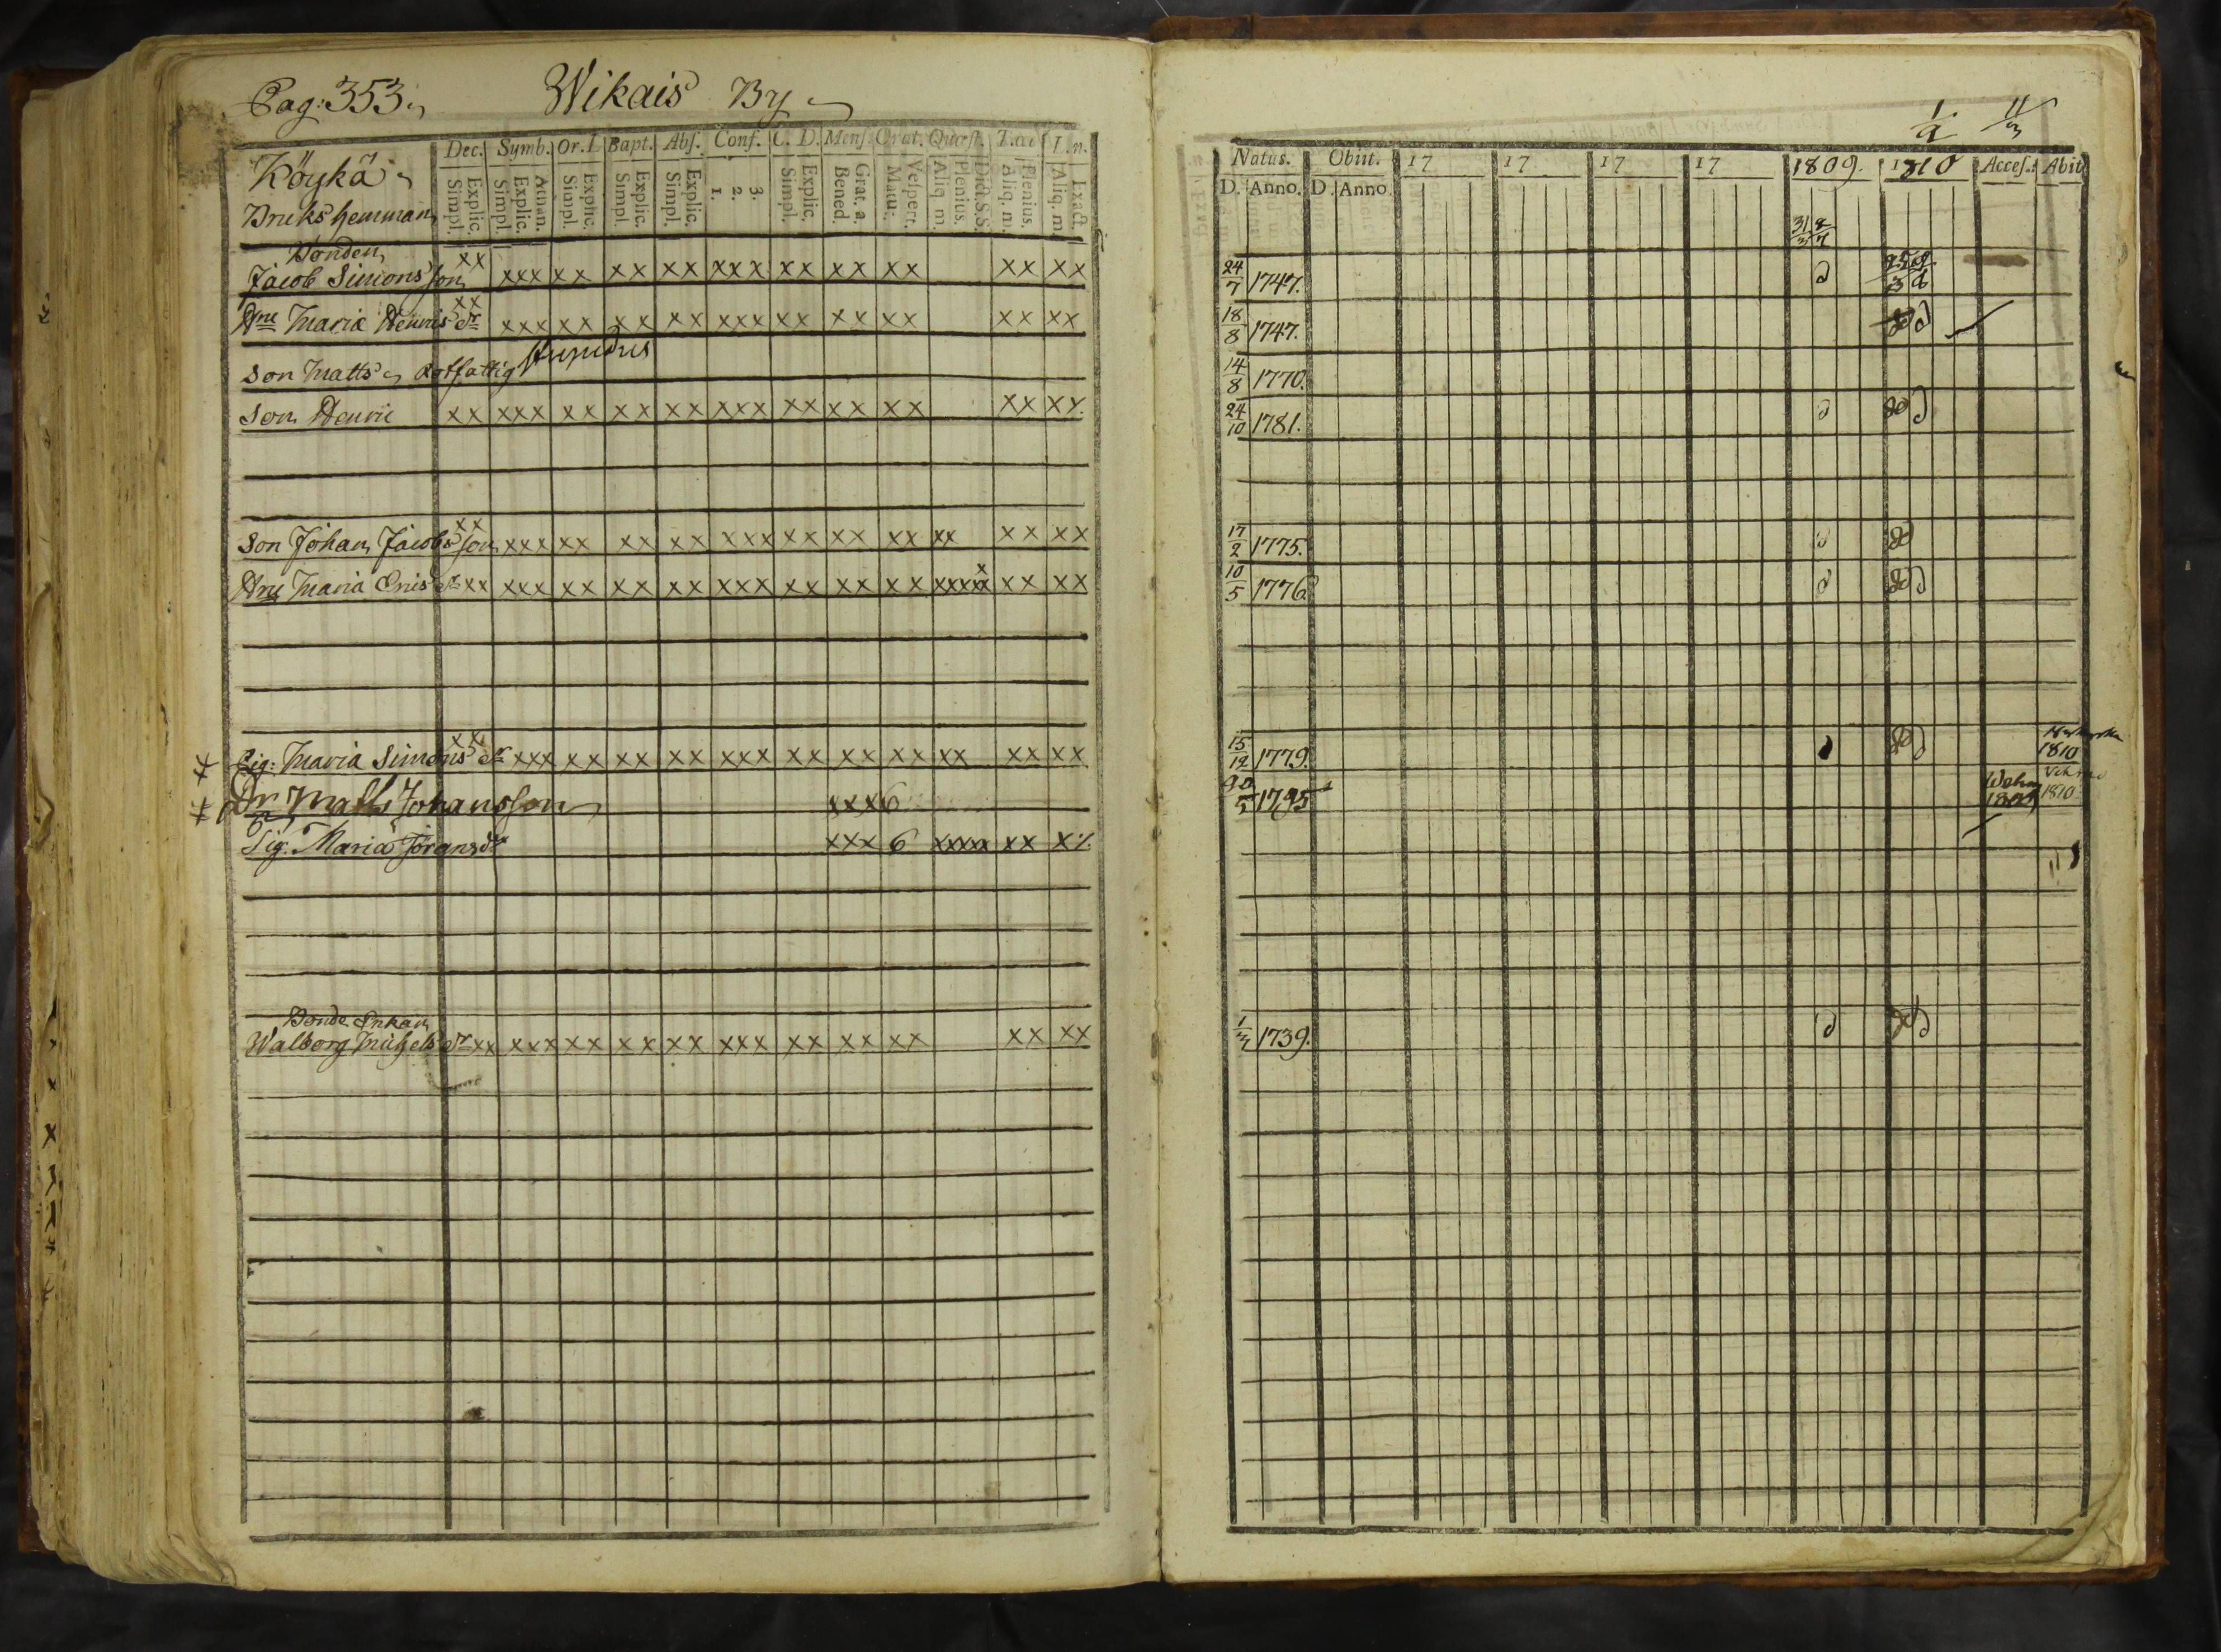 Pag: 353. Wikais By
Dec. Symb. Or. D. Bapt. Abs. Conf. C. D. Mens. Orat. Quæst.
Explic. Simpl. Athan. Explic. Simpl. Explic. Simpl. Explic. Simpl. Explic. Simpl. 3. 2. 1. Explic. Simpl. Grat. a. Bened. Vespert. Matut. D.d.S.S. Plenius. Aliq. m. Plenius. Aliq. m. Exact. Aliq. m.
Köykä
Bruks hemman
Natus. Obiit. 17 17 17 17 1809. 1810 Acces. Abiit
D. Anno. D. Anno.
Bonden
Jacob Simonsson xx xxx xx xx xx xxx xx xx xx xx xx 24/7 1747.
Hue Maria Henrics dr xx xxx xx xx xx xxx xx xx xx xx xx 18/8 1747.
Son Matts rotfattig stupidus 14/8 1770.
Son Henric xx xxx xx xx xx xxx xx xx xx xx xx 24/10 1781.
Son Johan Jacobsson xx xxx xx xx xx xxx xx xx xx xx xx xx 17/2 1775.
Hru Maria Erics dr xx xxx xx xx xx xxx xx xx xx xxxxx xx xx 10/5 1776
Pig: Maria Simons dr xx xxx xx xx xx xxx xx xx xx xx xx xx 15/12 1779. 1810
Dr Matts Johansson xxx 6 1795 1810
Pig. Maria Jörans dr xxx 6 xxxx xx x
Bonde Enkan
Walborg Michels dr xx xxx xx xx xx xxx xx xx xx xx xx 1739.